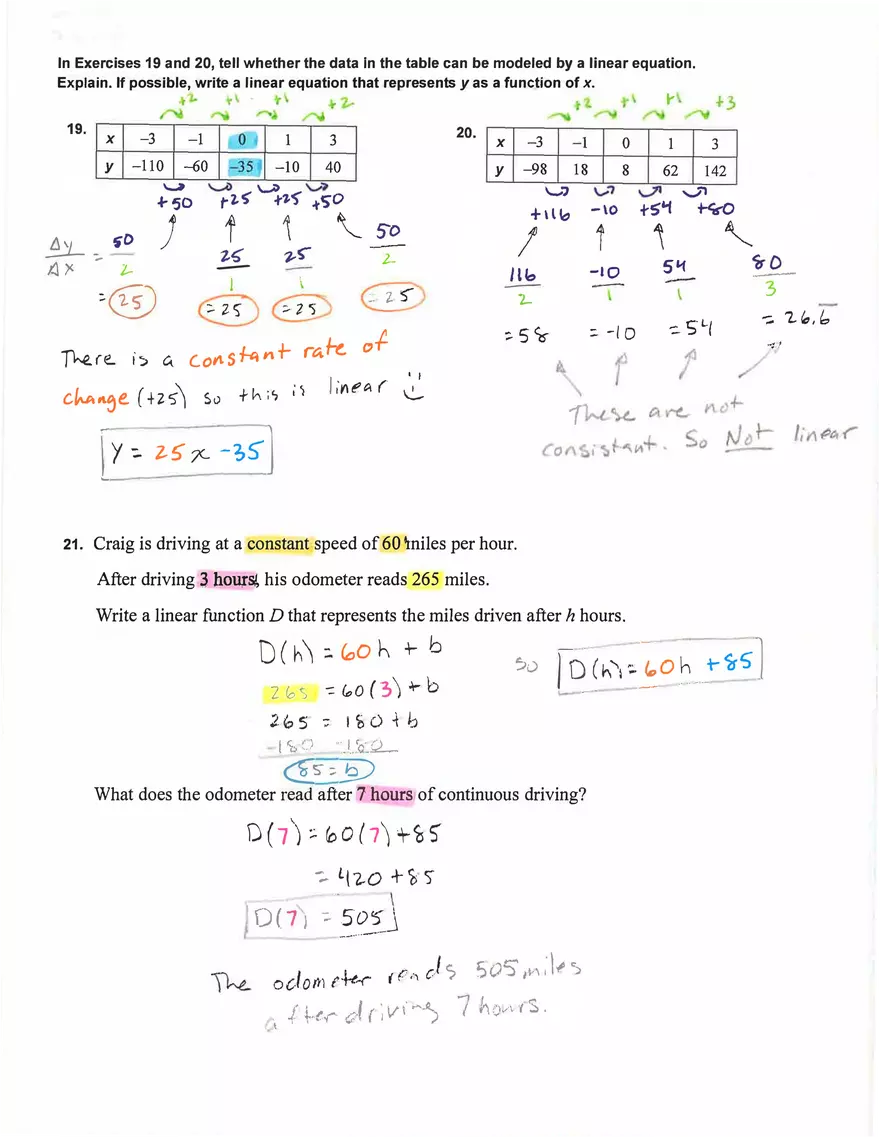 In Exercises 19 and 20, tell whether the data in the table can be modeled by a linear equation.
Explain. If possible, write a linear equation that represents y as a function of x.
19.
+2 +1 +1 +2
x –3 –1 0 1 3
y –110 –60 –35 –10 40
+50 +25 +25 +50
Δy/Δx = 50/2 25/1 25/1 50/2
= 25 = 25 = 25 = 25
There is a constant rate of
change (+25) so this is linear
y = 25x -35
20.
+2 +1 +1 +3
x –3 –1 0 1 3
y –98 18 8 62 142
+116 -10 +54 +80
116/2 -10/1 54/1 80/3
= 58 = -10 = 54 = 26.6̅
These are not
consistant. So Not linear
21. Craig is driving at a constant speed of 60 miles per hour.
After driving 3 hours, his odometer reads 265 miles.
Write a linear function D that represents the miles driven after h hours.
D(h) = 60h + b
265 = 60(3) + b
265 = 180 + b
-180 -180
85 = b
so D(h) = 60h +85
What does the odometer read after 7 hours of continuous driving?
D(7) = 60(7) +85
= 420 +85
D(7) = 505
The odometer reads 505 miles
after driving 7 hours.